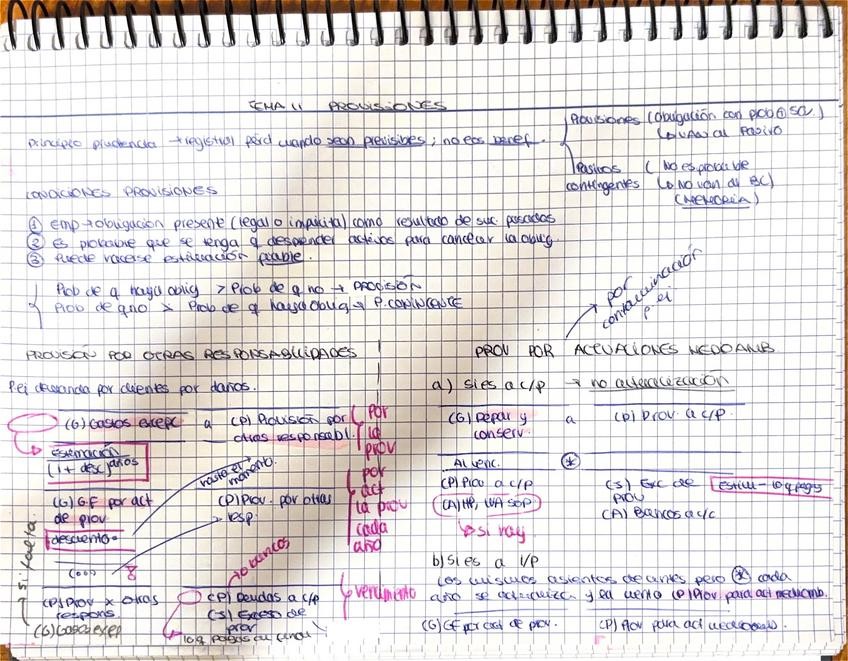 TEMA 11 PROVISIONES
Principio prudencia → registrar pérd cuando sean previsibles; no eos benef.
Provisiones (obligación con prob ⊕ 50%)
↳ van al pasivo
Pasivos contingentes ( No es probable
↳ no van al BC)
(MEMORIA)
CONDICIONES PROVISIONES
① Emp → obligación presente (legal o implícita) como resultado de suc. pasados
② es probable que se tenga q desprender activos para cancelar la oblig.
③ Puede hacerse estimación fiable.
Prob de q haya oblig > Prob de q no → PROVISIÓN
Prob de q no > Prob de q haya oblig → P. CONTINGENTE
PROVISIÓN POR OTRAS RESPONSABILIDADES
P.ej demanda por clientes por daños.
(G) Gastos excepc a (P) Provisión por otras responsabl.
por la prov
Estimación
(1 + desc) años
hasta el momento.
(G) G.F por act de prov
(P) Prov. por otras resp.
por act la prov cada año
descuento =
(...)
si falta.
(P) Prov x otras respons
(G) Gasto excep
o bancos
(P) Deudas a c/p
(I) Exceso de prov
vencimiento
lo q pagas al final
PROV POR ACTUACIONES MEDIOAMB.
→ por contaminación p.ej
a) Si es a c/p → no actualización
(G) Repar y conserv. a (P) Prov. a c/p.
Al venc. ⊛
(P) Prov a c/p
(A) HP, IVA SOP
↳ si hay
(I) Exc de prov
estim - lo q pagas
(A) Bancos c/c
b) Si es a l/p
Los mismos asientos de antes pero ⊛ cada
año se actualiza y la cuenta (P) Prov para act medioamb.
(G) GF por act de prov. (P) Prov para act medioamb.